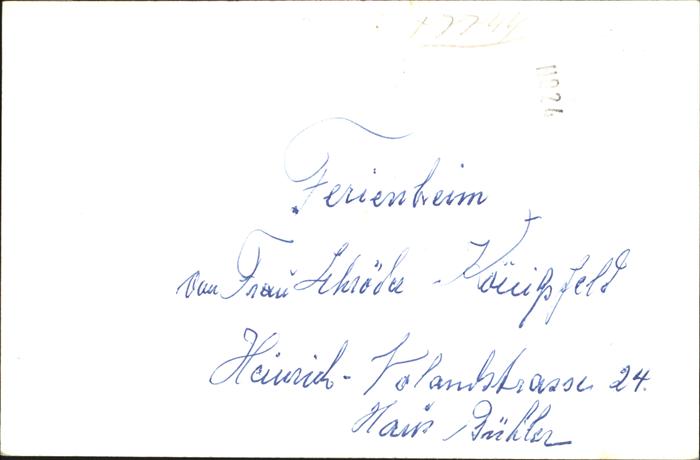 + 7744
11924
Ferienheim
von Frau Schröder - Königsfeld
Heinrich - Volandstrasse 24.
Haus Bühler